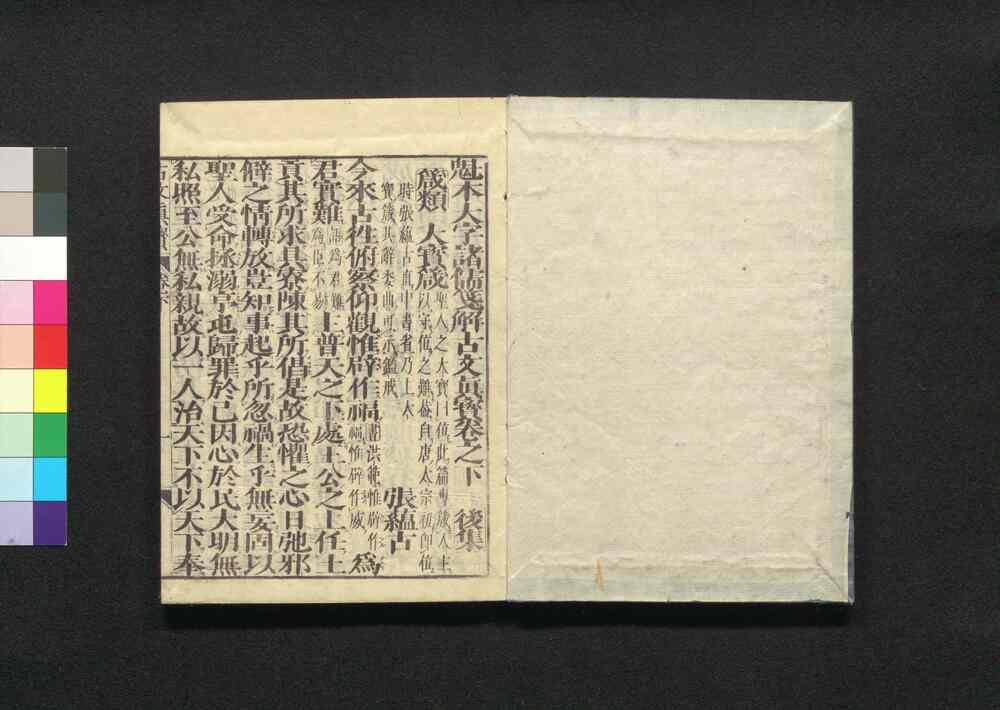 魁本大字諸儒箋解古文眞寳卷之下 後集
箴類 大寳箴 聖人之大寳曰位此篇專箴人主
以守位之難 唐太宗初卽位
時張蘊古直中書省乃上大
寳箴其辭委曲可 鑑戒
張蘊古
今來古徃俯察仰觀惟辟作福 書洪範惟辟作
福惟辟作威 爲
君實難 語爲君難
爲臣不易 主普天之下處王公之上任土
貢其所求具寮陳其所倡是故恐懼之心日弛邪
僻之情轉放豈知事起乎所忽禍生乎無妄固以
聖人受命拯溺亨屯歸罪於己因心於民大明無
私照至公無私親故以一人治天下不以天下奉
古文眞寳